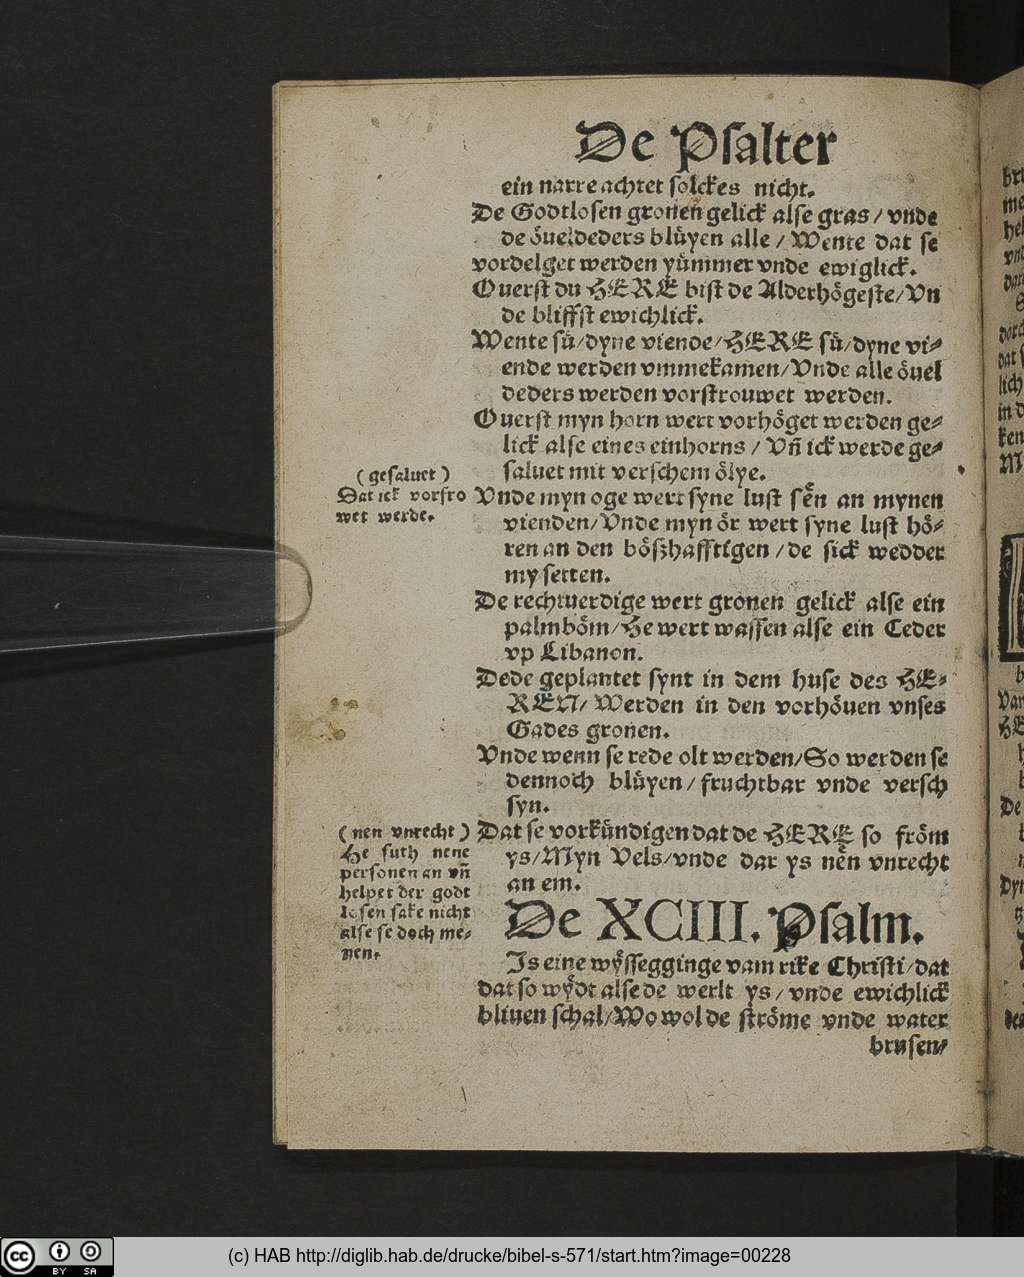 De Psalter
ein narre achtet solckes nicht.
De Godtlosen gronen gelick alse gras / vnde
de öueldeders blüyen alle / Wente dat se
vordelget werden yümmer vnde ewiglick.
Ouerst du HERE bist de Alderhögeste/Vn
de bliffst ewichlick.
Wente sü/dyne viende/HERE sü/dyne vi-
ende werden vmmekamen/Vnde alle öuel
deders werden vorstrouwet werden.
Ouerst myn horn wert vorhöget werden ge-
lick alse eines einhorns / Vñ ick werde ge-
saluet mit verschem ölye.
(gesaluet)
Dat ick vorfro
wet werde.
Vnde myn oge wert syne lust sẽn an mynen
vienden/Vnde myn ör wert syne lust hö-
ren an den bößhafftigen / de sick wedder
my setten.
De rechtuerdige wert gronen gelick alse ein
palmböm/He wert wassen alse ein Ceder
vp Libanon.
Dede geplantet synt in dem huse des HE-
REN/ Werden in den vorhöuen vnses
Gades gronen.
Vnde wenn se rede olt werden/So werden se
dennoch blüyen / fruchtbar vnde versch
syn.
Dat se vorkündigen dat de HERE so fröm
ys/Myn Vels/vnde dar ys nẽn vnrecht
an em.
(nen vnrecht)
He suth nene
personen an vñ
helpet der godt
losen sake nicht
alse se doch me-
nen.
De XCIII. Psalm.
Is eine wyssegginge vam rike Christi/dat
dat so wydt alse de werlt ys / vnde ewichlick
bliuen schal/Wo wol de ströme vnde water
brusen/
bru
me
hel
vnd
dar
lich
in d
ken
M
De
Dyn
CC BY SA
(c) HAB http://diglib.hab.de/drucke/bibel-s-571/start.htm?image=00228